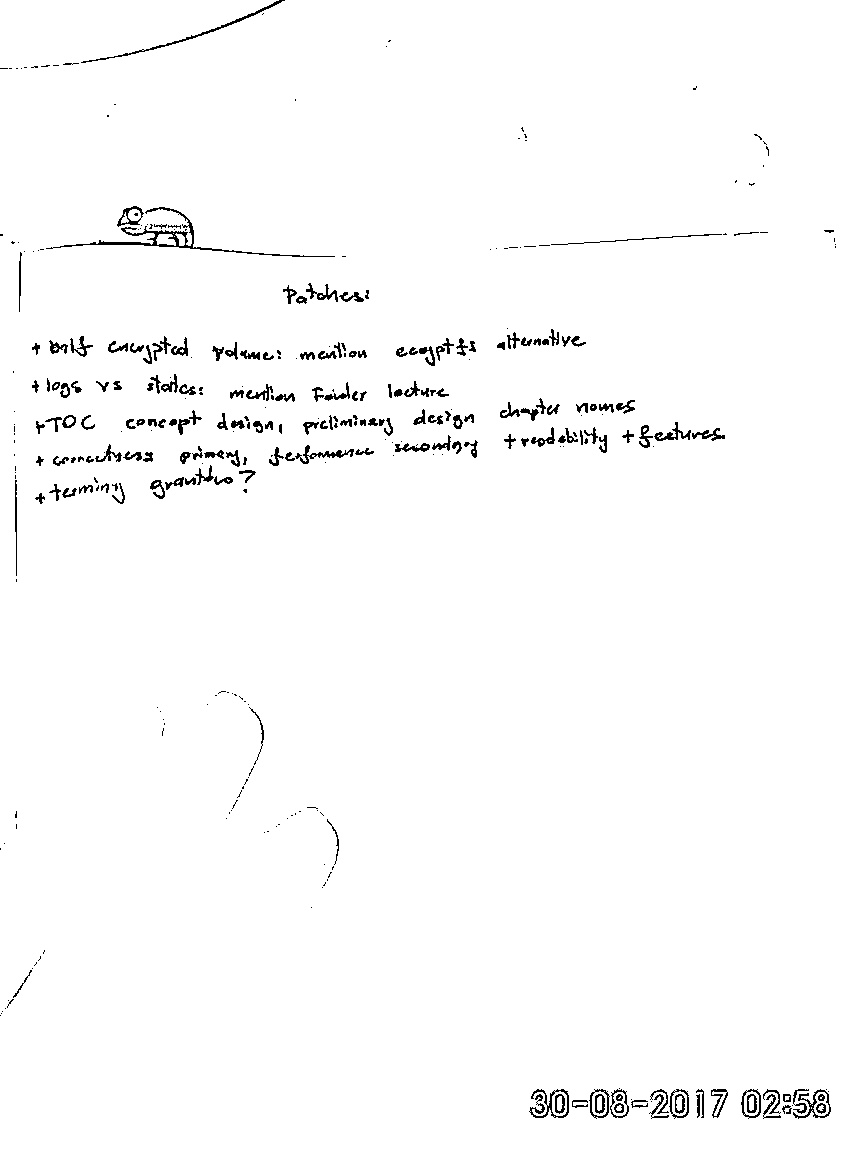 Patches:
+ encrypted volume: mention ecryptfs alternative
+ logs vs states: mention lecture
+ TOC concept design, preliminary design chapter names
+ correctness primary, performance secondary + readability + features
+ ?
30-08-2017 02:58